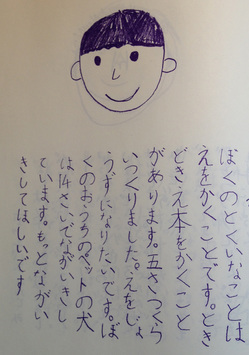 ぼくのとくいなことは
えをかくことです。とき
どきえ本をかくこと
があります。五さつくら
いつくりました。えをじょ
うずになりたいです。ぼ
くのおうちのペットの犬
は14さいでながいきし
ています。もっとながい
きしてほしいです